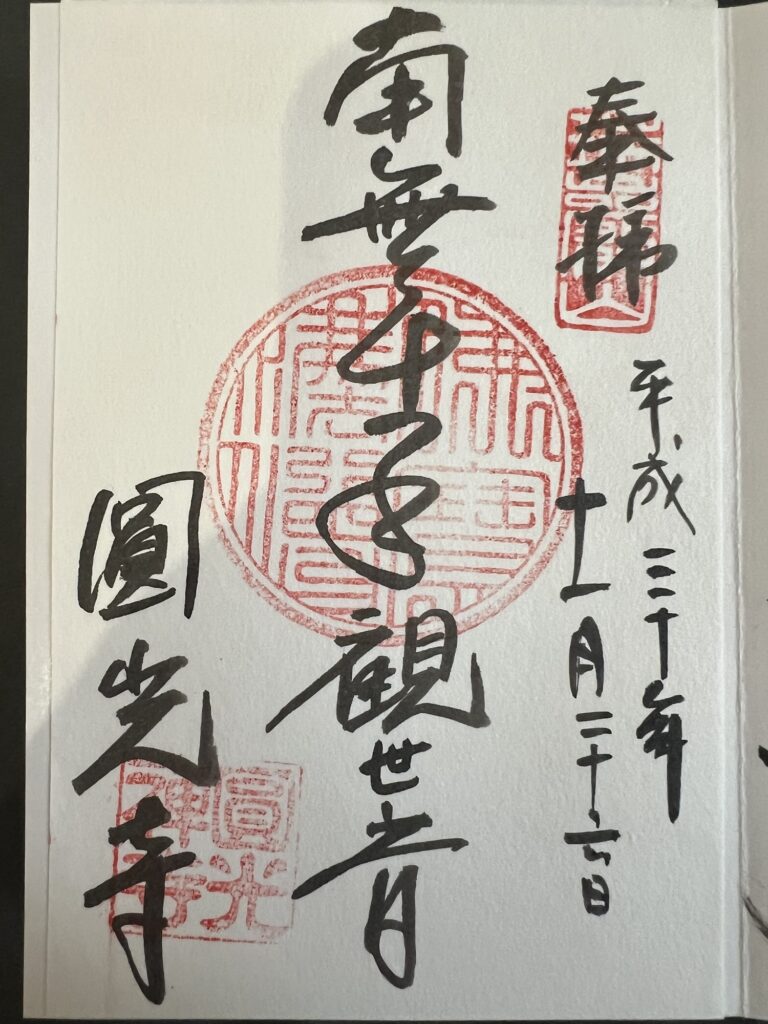 奉拝
平成三十年
十一月二十六日
南無千手觀世音
圓光寺
圓光禅寺